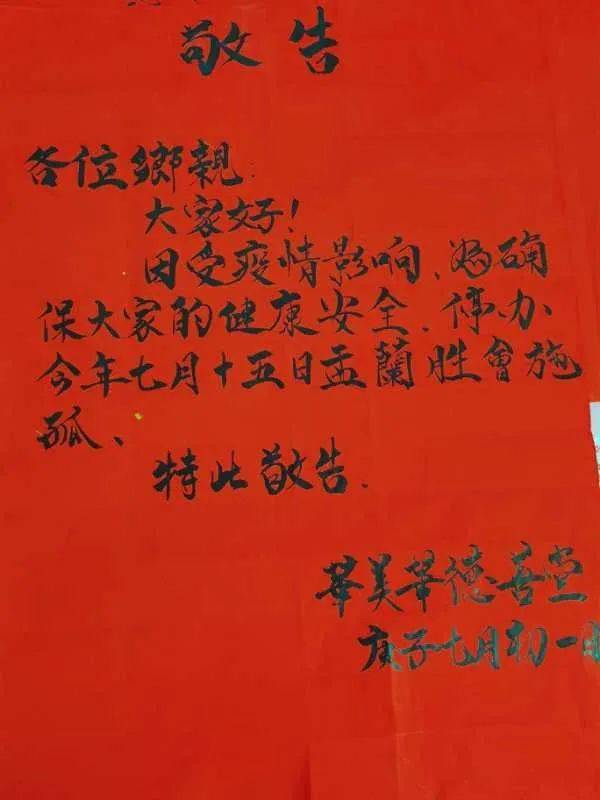 敬告
各位鄉親:
大家好!
因受疫情影响、为确
保大家的健康安全、停办
今年七月十五日盂蘭胜會施
孤、
特此敬告.
華美華德善堂
庚子七月初一日